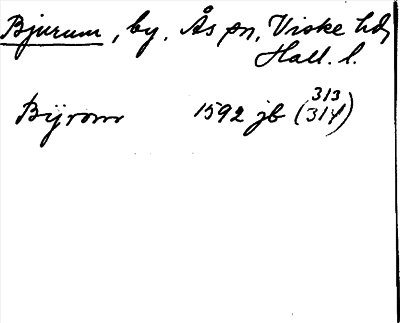 Bjurum, by, Ås sn, Viske hd,
Hall. l.
313
Bÿrom 1592 jb (314)